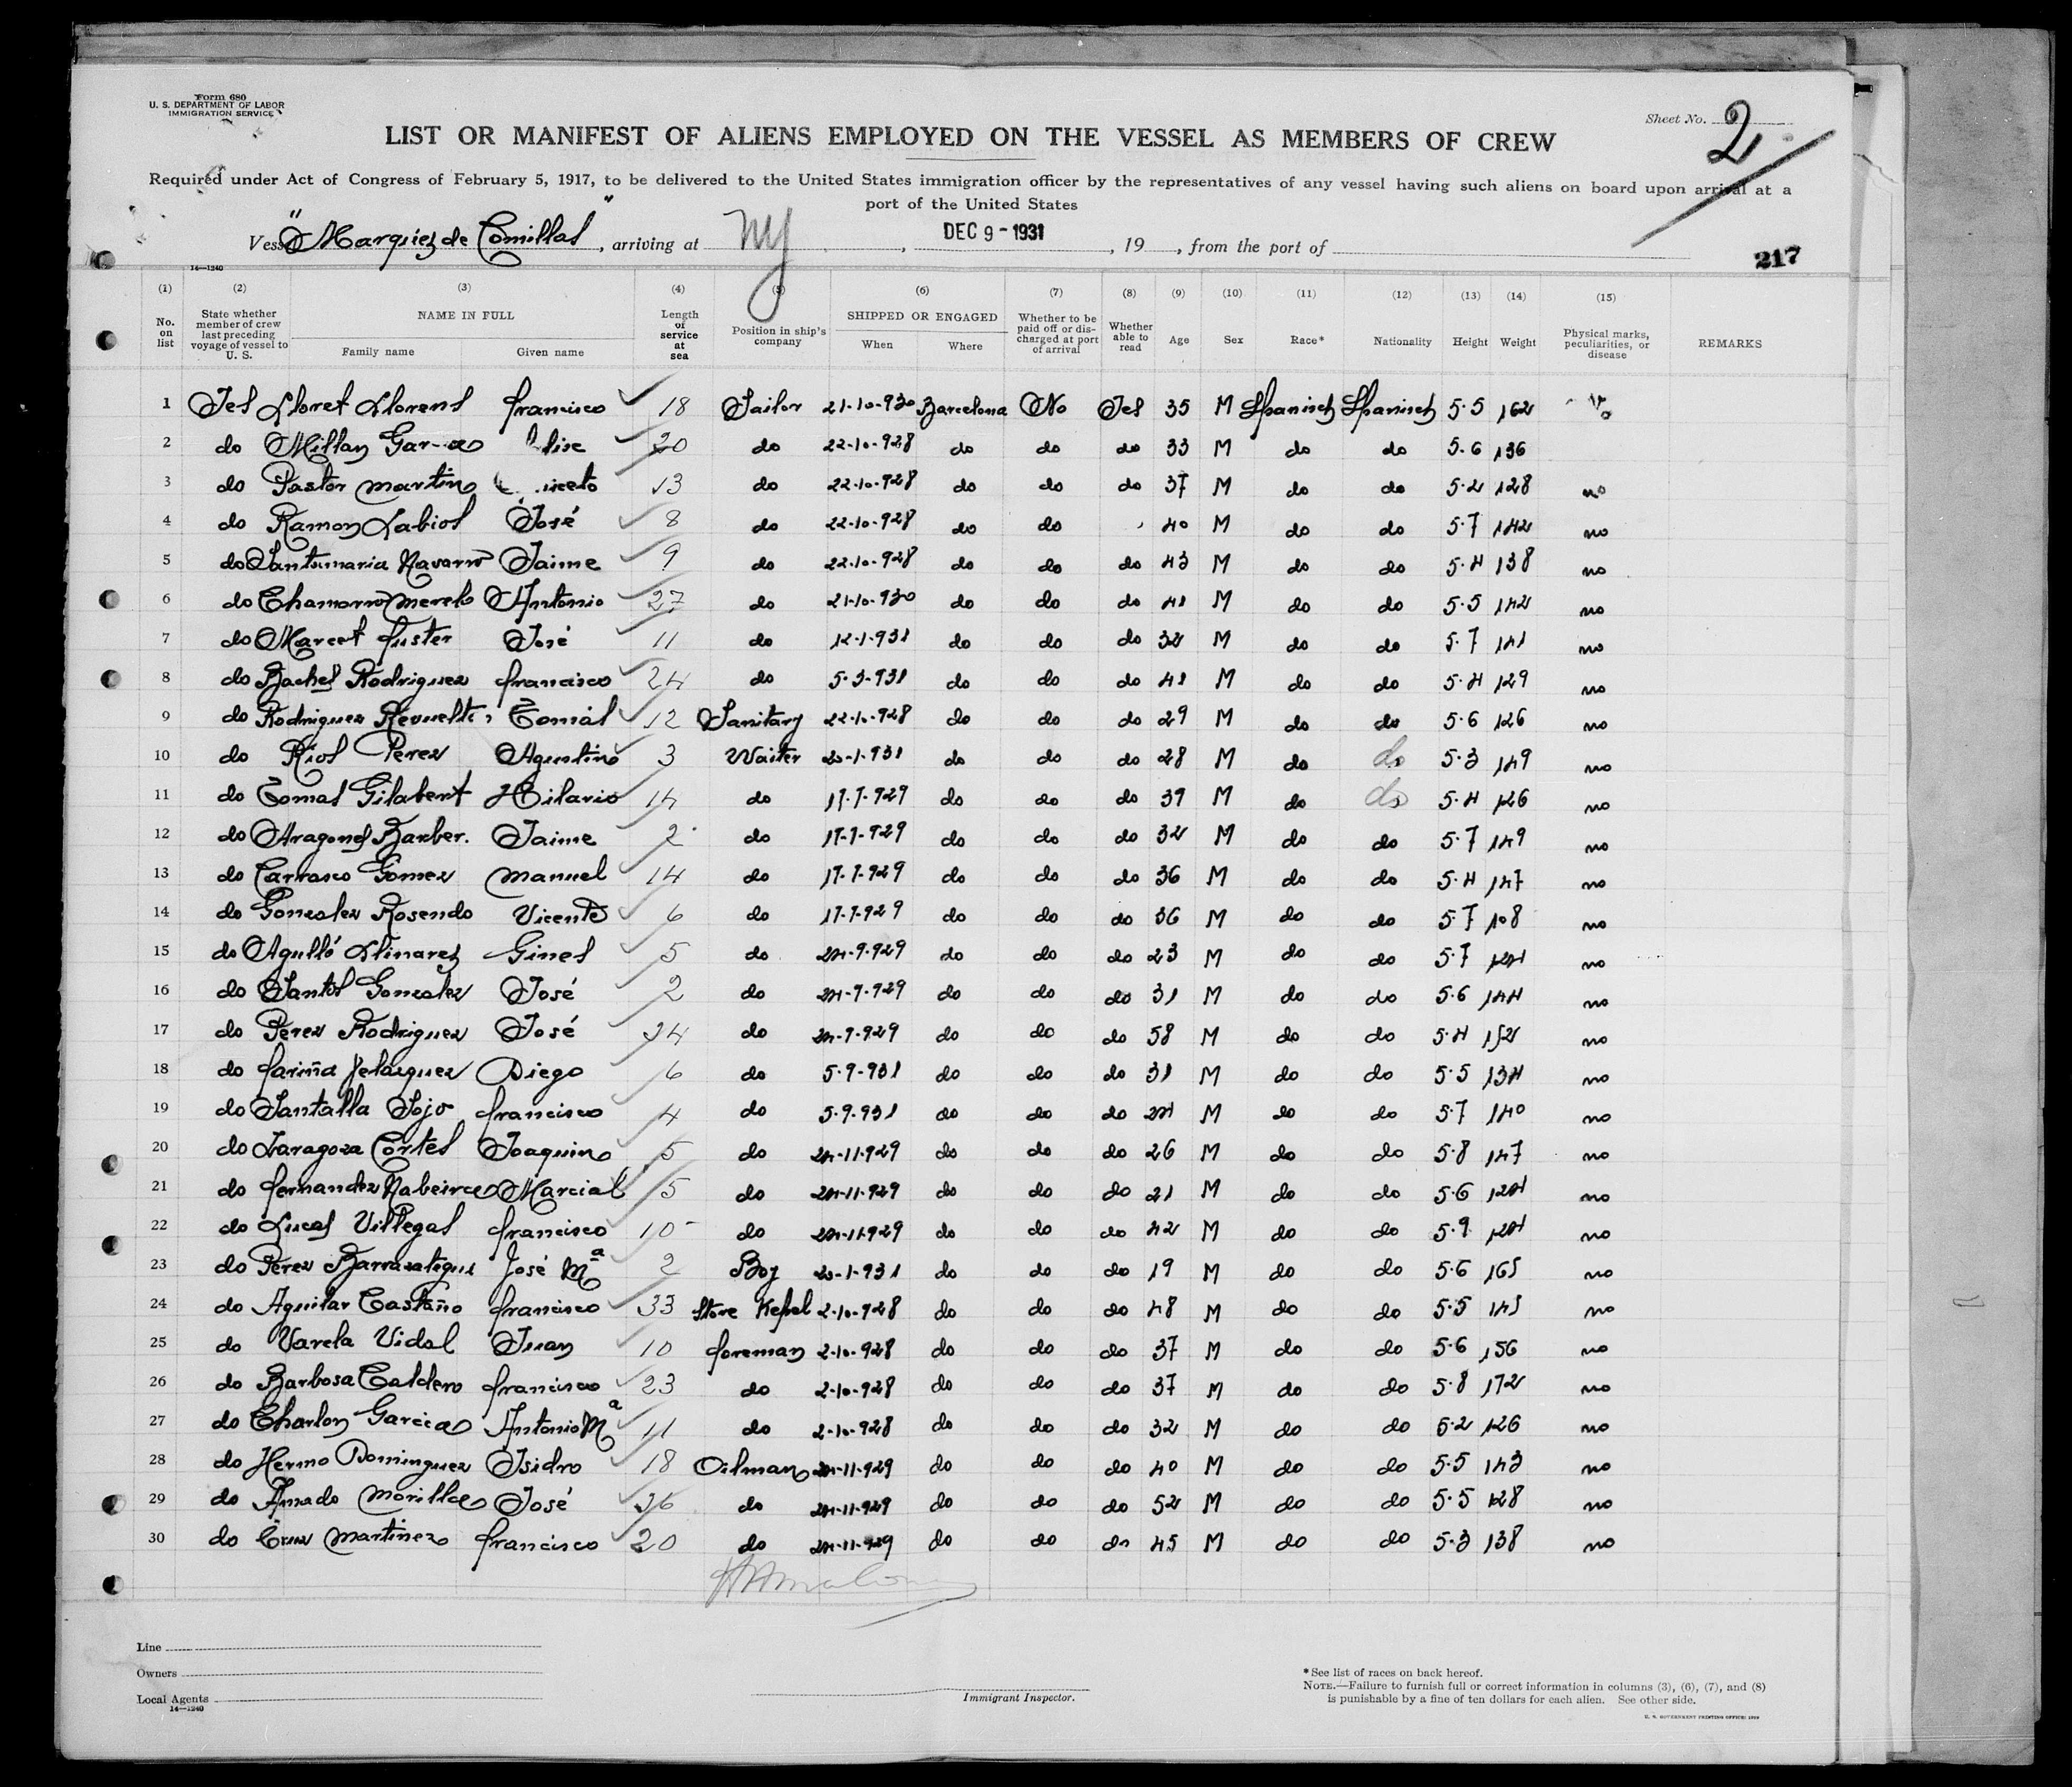 Form 680
U. S. DEPARTMENT OF LABOR
IMMIGRATION SERVICE
Sheet No. 2
LIST OR MANIFEST OF ALIENS EMPLOYED ON THE VESSEL AS MEMBERS OF CREW
Required under Act of Congress of February 5, 1917, to be delivered to the United States immigration officer by the representatives of any vessel having such aliens on board upon arrival at a
port of the United States
Vessel "Marquez de Comillas", arriving at NY, DEC 9 - 1931, 19, from the port of
217
14—1240
(1) (2) (3) (4) (5) (6) (7) (8) (9) (10) (11) (12) (13) (14) (15)
No. on list State whether member of crew last preceding voyage of vessel to U. S. NAME IN FULL Family name Given name Length of service at sea Position in ship's company SHIPPED OR ENGAGED When Where Whether to be paid off or discharged at port of arrival Whether able to read Age Sex Race* Nationality Height Weight Physical marks, peculiarities, or disease REMARKS
1 Yes Lloret Llorens francisco 18 Sailor 21-10-930 Barcelona No Yes 35 M Spanish Spanish 5.5 162
2 do Millan 20 do 22-10-928 do do do 33 M do do 5.6 136
3 do Pastor Martin 13 do 22-10-928 do do do 37 M do do 5.2 128 no
4 do Ramon Labios José 8 do 22-10-928 do do 40 M do do 5.7 142 no
5 do Santamaria Navarro Jaime 9 do 22-10-928 do do do 43 M do do 5.4 138 no
6 do Chamorro Merelo Antonio 27 do 21-10-930 do do do 41 M do do 5.5 142 no
7 do Marcet fuster José 11 do 12-1-931 do do do 32 M do do 5.7 141 no
8 do Baches Rodriguez francisco 24 do 5-3-931 do do do 41 M do do 5.4 129 no
9 do Rodriguez Revuelta Tomás 12 Sanitary 22-10-928 do do do 29 M do do 5.6 126 no
10 do Rios Perez Agustino 3 Waiter 20-1-931 do do do 28 M do do 5.3 149 no
11 do Tomas Gilabert Hilario 14 do 17-7-929 do do do 39 M do do 5.4 126 no
12 do Aragones Barber. Jaime 2 do 17-7-929 do do do 32 M do do 5.7 149 no
13 do Carrasco Gomez Manuel 14 do 17-7-929 do do do 36 M do do 5.4 147 no
14 do Gonzalez Rosendo Vicente 6 do 17-7-929 do do do 36 M do do 5.7 108 no
15 do Agulló Llinares Gines 5 do 24-9-929 do do do 23 M do do 5.7 124 no
16 do Santos Gonzalez José 2 do 24-9-929 do do do 31 M do do 5.6 144 no
17 do Perez Rodriguez José 34 do 24-9-929 do do do 58 M do do 5.4 152 no
18 do fariña Velazquez Diego 6 do 5-9-931 do do do 31 M do do 5.5 134 no
19 do Santalla Sojo francisco 4 do 5-9-931 do do do 24 M do do 5.7 140 no
20 do Zaragoza Cortes Joaquin 5 do 24-11-929 do do do 26 M do do 5.8 147 no
21 do fernandez Nabeira Marcial 5 do 24-11-929 do do do 21 M do do 5.6 124 no
22 do Lucas Villegas francisco 10 do 24-11-929 do do do 42 M do do 5.9 124 no
23 do Perez José Mª 2 Boy 20-1-931 do do do 19 M do do 5.6 165 no
24 do Aguilar Castaño francisco 33 Store Keper 2-10-928 do do do 48 M do do 5.5 145 no
25 do Varela Vidal Juan 10 foreman 2-10-928 do do do 37 M do do 5.6 156 no
26 do Barbosa Caldero francisco 23 do 2-10-928 do do do 37 M do do 5.8 172 no
27 do Charlon Garcia Antonio Mª 11 do 2-10-928 do do do 32 M do do 5.2 126 no
28 do Hermo Dominguez Isidro 18 Oilman 24-11-929 do do do 40 M do do 5.5 143 no
29 do Amado Morilla José 36 do 24-11-929 do do do 52 M do do 5.5 128 no
30 do Cruz Martinez francisco 20 do 24-11-929 do do do 45 M do do 5.3 138 no
Line
Owners
Local Agents
14—1240
Immigrant Inspector.
* See list of races on back hereof.
NOTE.—Failure to furnish full or correct information in columns (3), (6), (7), and (8)
is punishable by a fine of ten dollars for each alien. See other side.